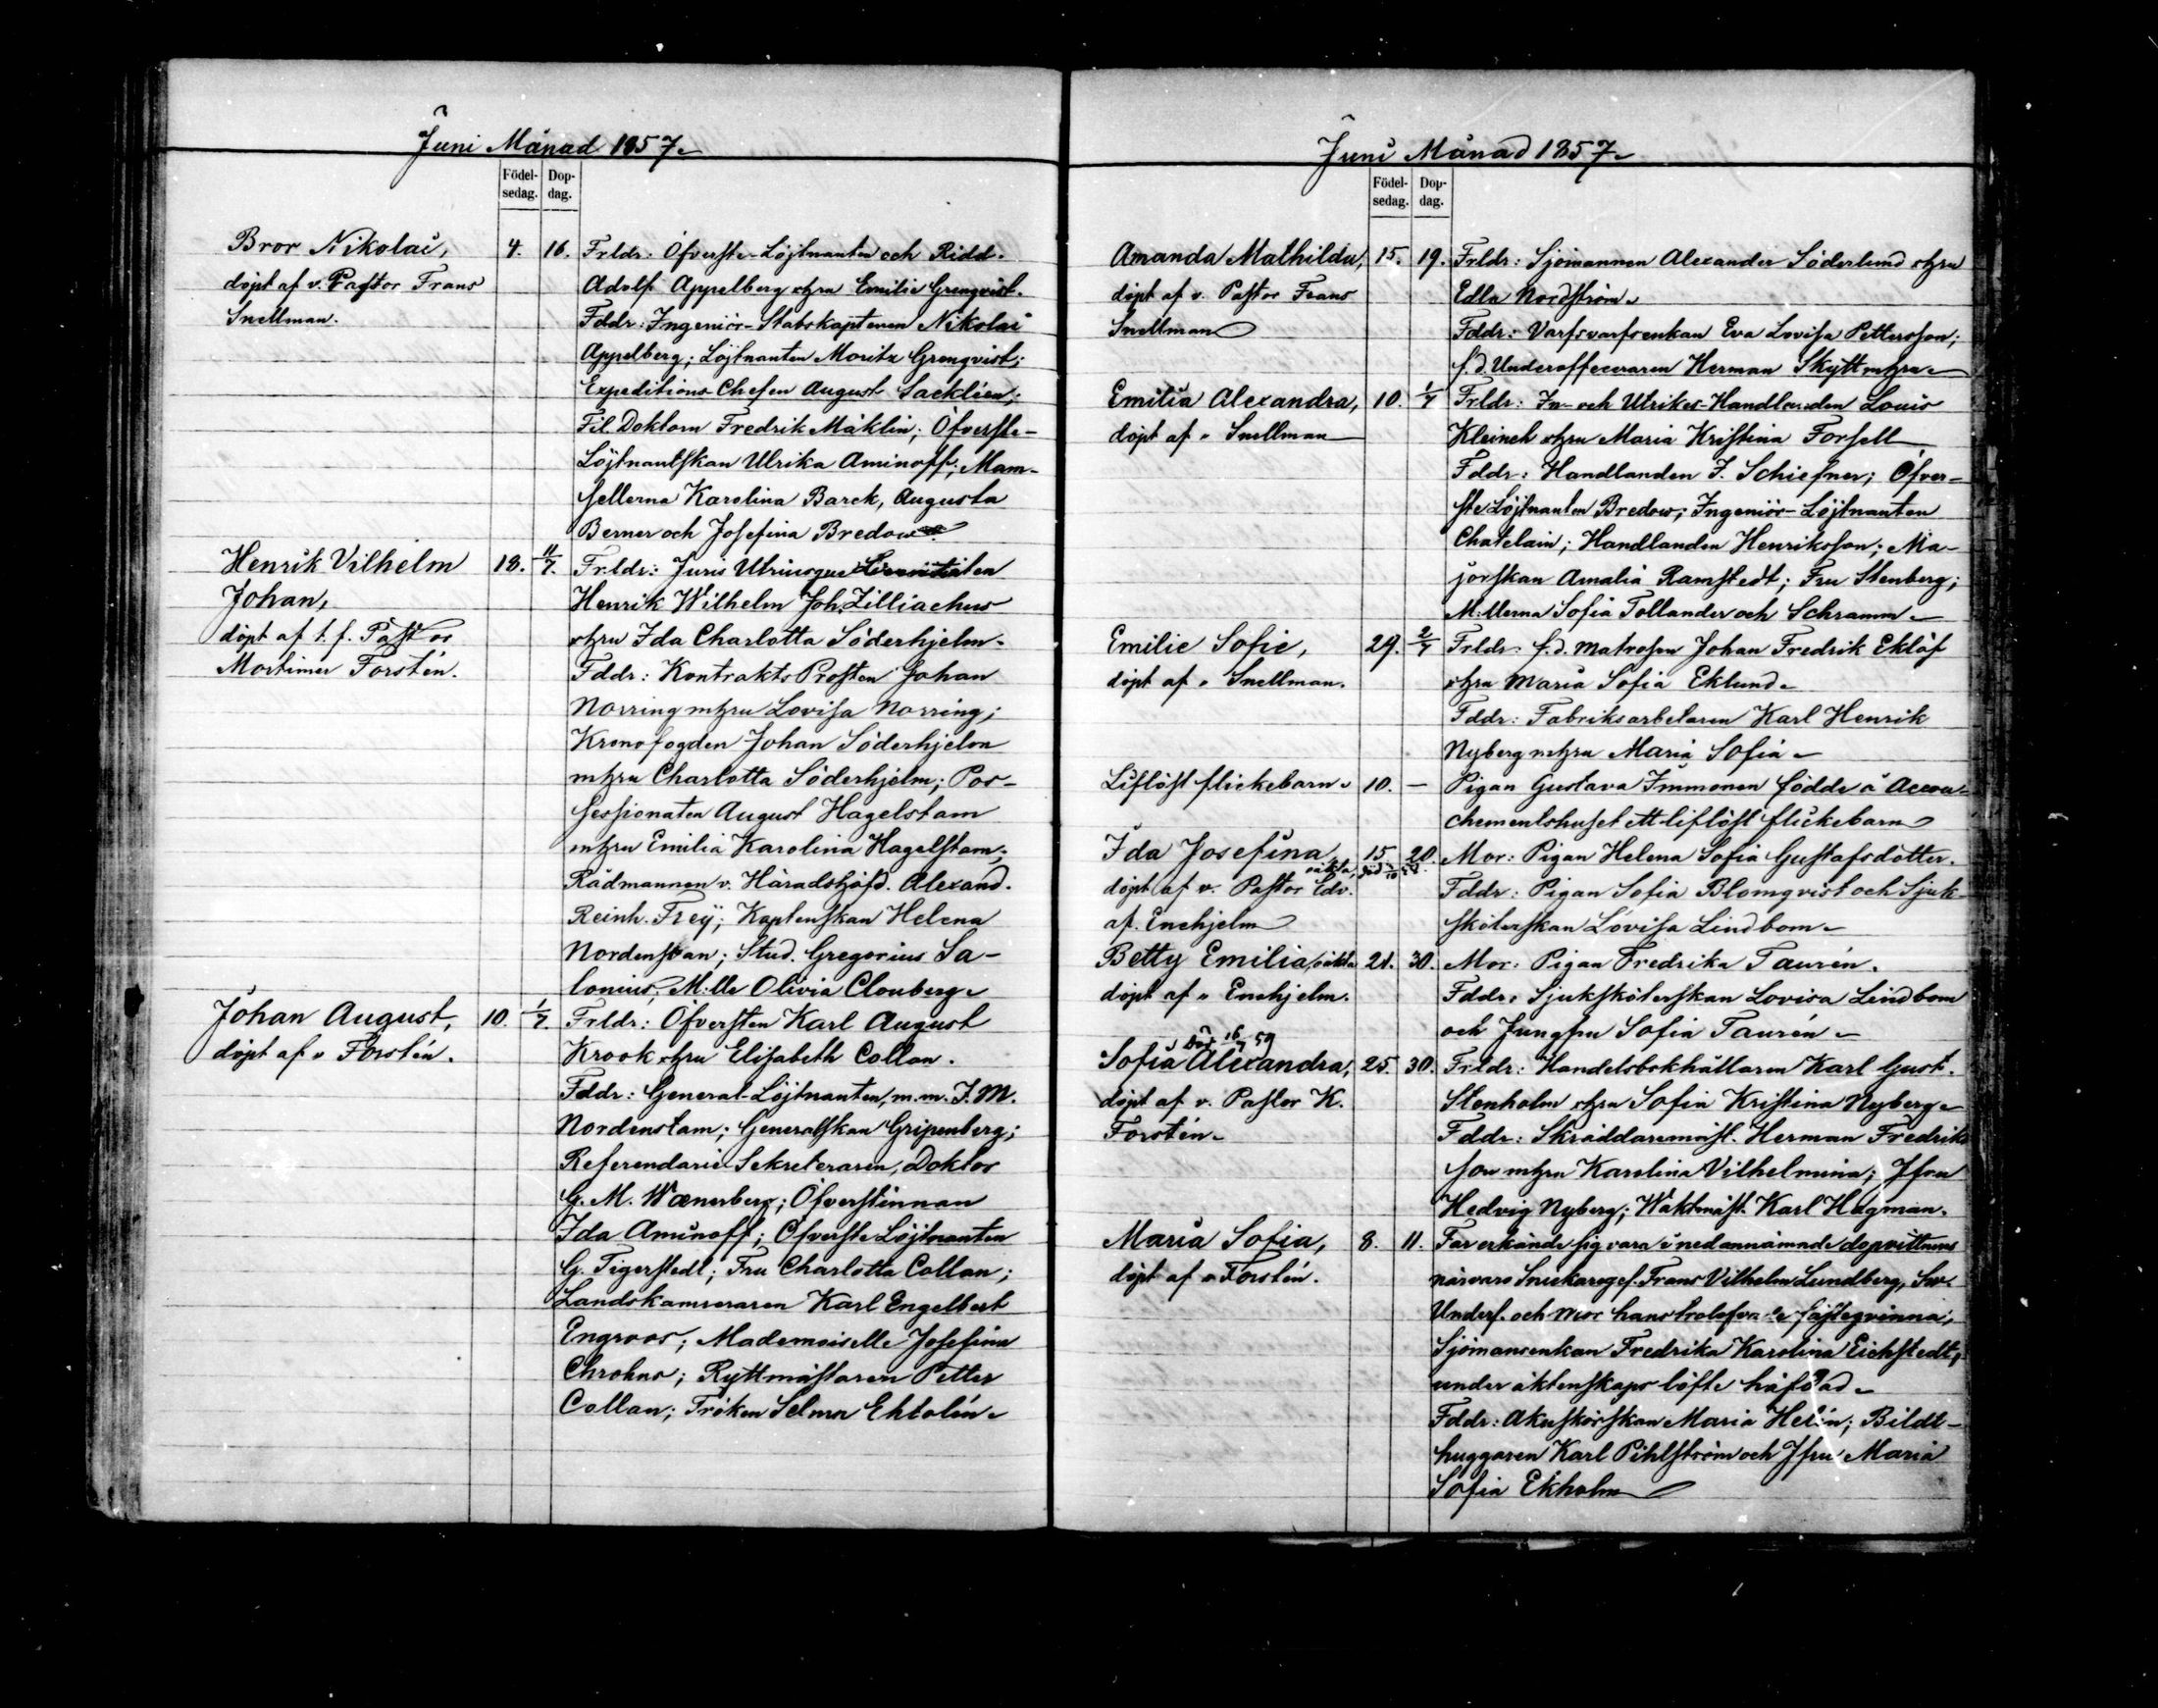 Juni Månad 1857.
Födel-
sedag.
Dop-
dag.
Bror Nikolai,
döpt af v. Pastor Frans
Snellman.
4. 16.
Frldr: Öfverste-Löjtnanten och Ridd.
Adolf Appelberg o hru Emilie Grenqvist.
Fddr: Ingeniör-Stabskaptenen Nikolai
Appelberg; Löjtnanten Moritz Grenqvist;
Expeditions Chefen August Sackléen;
Fil. Doktorn Fredrik Mäklin; Öfverste-
Löjtnantskan Ulrika Aminoff; Mam-
sellerna Karolina Barck, Augusta
Berner och Josefina Bredow
Henrik Vilhelm
Johan,
döpt af t. f. Pastor
Mortimer Forstén.
18. 11/7.
Frldr: Juris Utriusque Licentiaten
Henrik Wilhelm Joh. Zilliachus
o hru Ida Charlotta Söderhjelm.
Fddr: Kontrakts Prosten Johan
Norring m hru Lovisa Norring;
Kronofogden Johan Söderhjelm
m hru Charlotta Söderhjelm; Pos-
sessionaten August Hagelstam
m hru Emilia Karolina Hagelstam;
Rådmannen v. Häradshöfd. Alexand.
Reinh. Frey; Kaptenskan Helena
Nordenstam; Stud. Gregorius Sa-
lonius; M:lle Olivia Clouberg.
Johan August,
döpt af " Forstén.
10. 1/7.
Frldr: Öfversten Karl August
Krook o hru Elisabeth Collan.
Fddr: General-Löjtnanten, m.m. J. M.
Nordenstam; Generalskan Gripenberg;
Referendarie Sekreteraren, Doktor
G. M. Wænerberg; Öfverstinnan
Ida Aminoff; Öfverste Löjtnanten
G. Tigerstedt; Fru Charlotta Collan;
Landskamreraren Karl Engelbert
Engroos; Mademoiselle Josefina
Chrohns; Ryttmästaren Petter
Collan; Fröken Selma Ehtolén.
Juni Månad 1857.
Födel-
sedag.
Dop-
dag.
Amanda Mathilda,
döpt af v. Pastor Frans
Snellman
15. 19.
Frldr: Sjömannen Alexander Söderlund o hru
Edla Nordström.
Fddr: Varfsvarfsenkan Eva Lovisa Pettersson;
f.d. Underofficeraren Herman Skytt m hru
Emilia Alexandra,
döpt af " Snellman
10. 1/7
Frldr: In- och Utrikes-Handlanden Louis
Kleineh o hru Maria Kristina Forsell
Fddr: Handlanden J. Schiefner; Öfver-
ste Löjtnanten Bredow; Ingeniör-Löjtnanten
Chatelain; Handlanden Henriksson; Ma-
jorskan Amalia Ramstedt; Fru Stenberg;
M:llerna Sofia Tollander och Schramm.
Emilie Sofie,
döpt af " Snellman.
29. 2/7
Frldr: f.d. Matrosen Johan Fredrik Eklöf
o hru Maria Sofia Eklund.
Fddr: Fabriksarbetaren Karl Henrik
Nyberg m hru Maria Sofia.
Liflöst flickebarn.
10. —
Pigan Gustava Immonen födde å Accou-
chementshuset ett liflöst flickebarn
Ida Josefina,
oäkta,
döpt af v. Pastor Edv.
af Enehjelm
15. 20.
Mor: Pigan Helena Sofia Gustafsdotter.
Fddr: Pigan Sofia Blomqvist och Sjuk-
sköterskan Lovisa Lindbom.
Betty Emilia oäkta
döpt af " Enehjelm.
21. 30.
Mor: Pigan Fredrika Taurén.
Fddr: Sjuksköterskan Lovisa Lindbom
och Jungfru Sofia Taurén.
Död 16/7 59
Sofia Alexandra,
döpt af v. Pastor K.
Forstén.
25. 30.
Frldr: Handelsbokhållaren Karl Gust.
Stenholm o hru Sofia Kristina Nyberg.
Fddr: Skräddaremäst. Herman Fredriks
son m hru Karolina Vilhelmina; Jfru
Hedvig Nyberg; Waktmäst. Karl Hagman.
Maria Sofia,
döpt af " Forstén.
8. 11.
Far erkände sig vara i nedannämnde dopvittnens
närvaro Snickaregef. Frans Vilhelm Lundberg, Sv.
Unders. och Mor hans trolofvade fästeqvinna,
Sjömansenkan Fredrika Karolina Eichstedt,
under äktenskaps löfte häfdad.
Fddr: Akuskörskan Maria Helin; Bildt-
huggaren Karl Pihlström och Jfru Maria
Sofia Ekholm